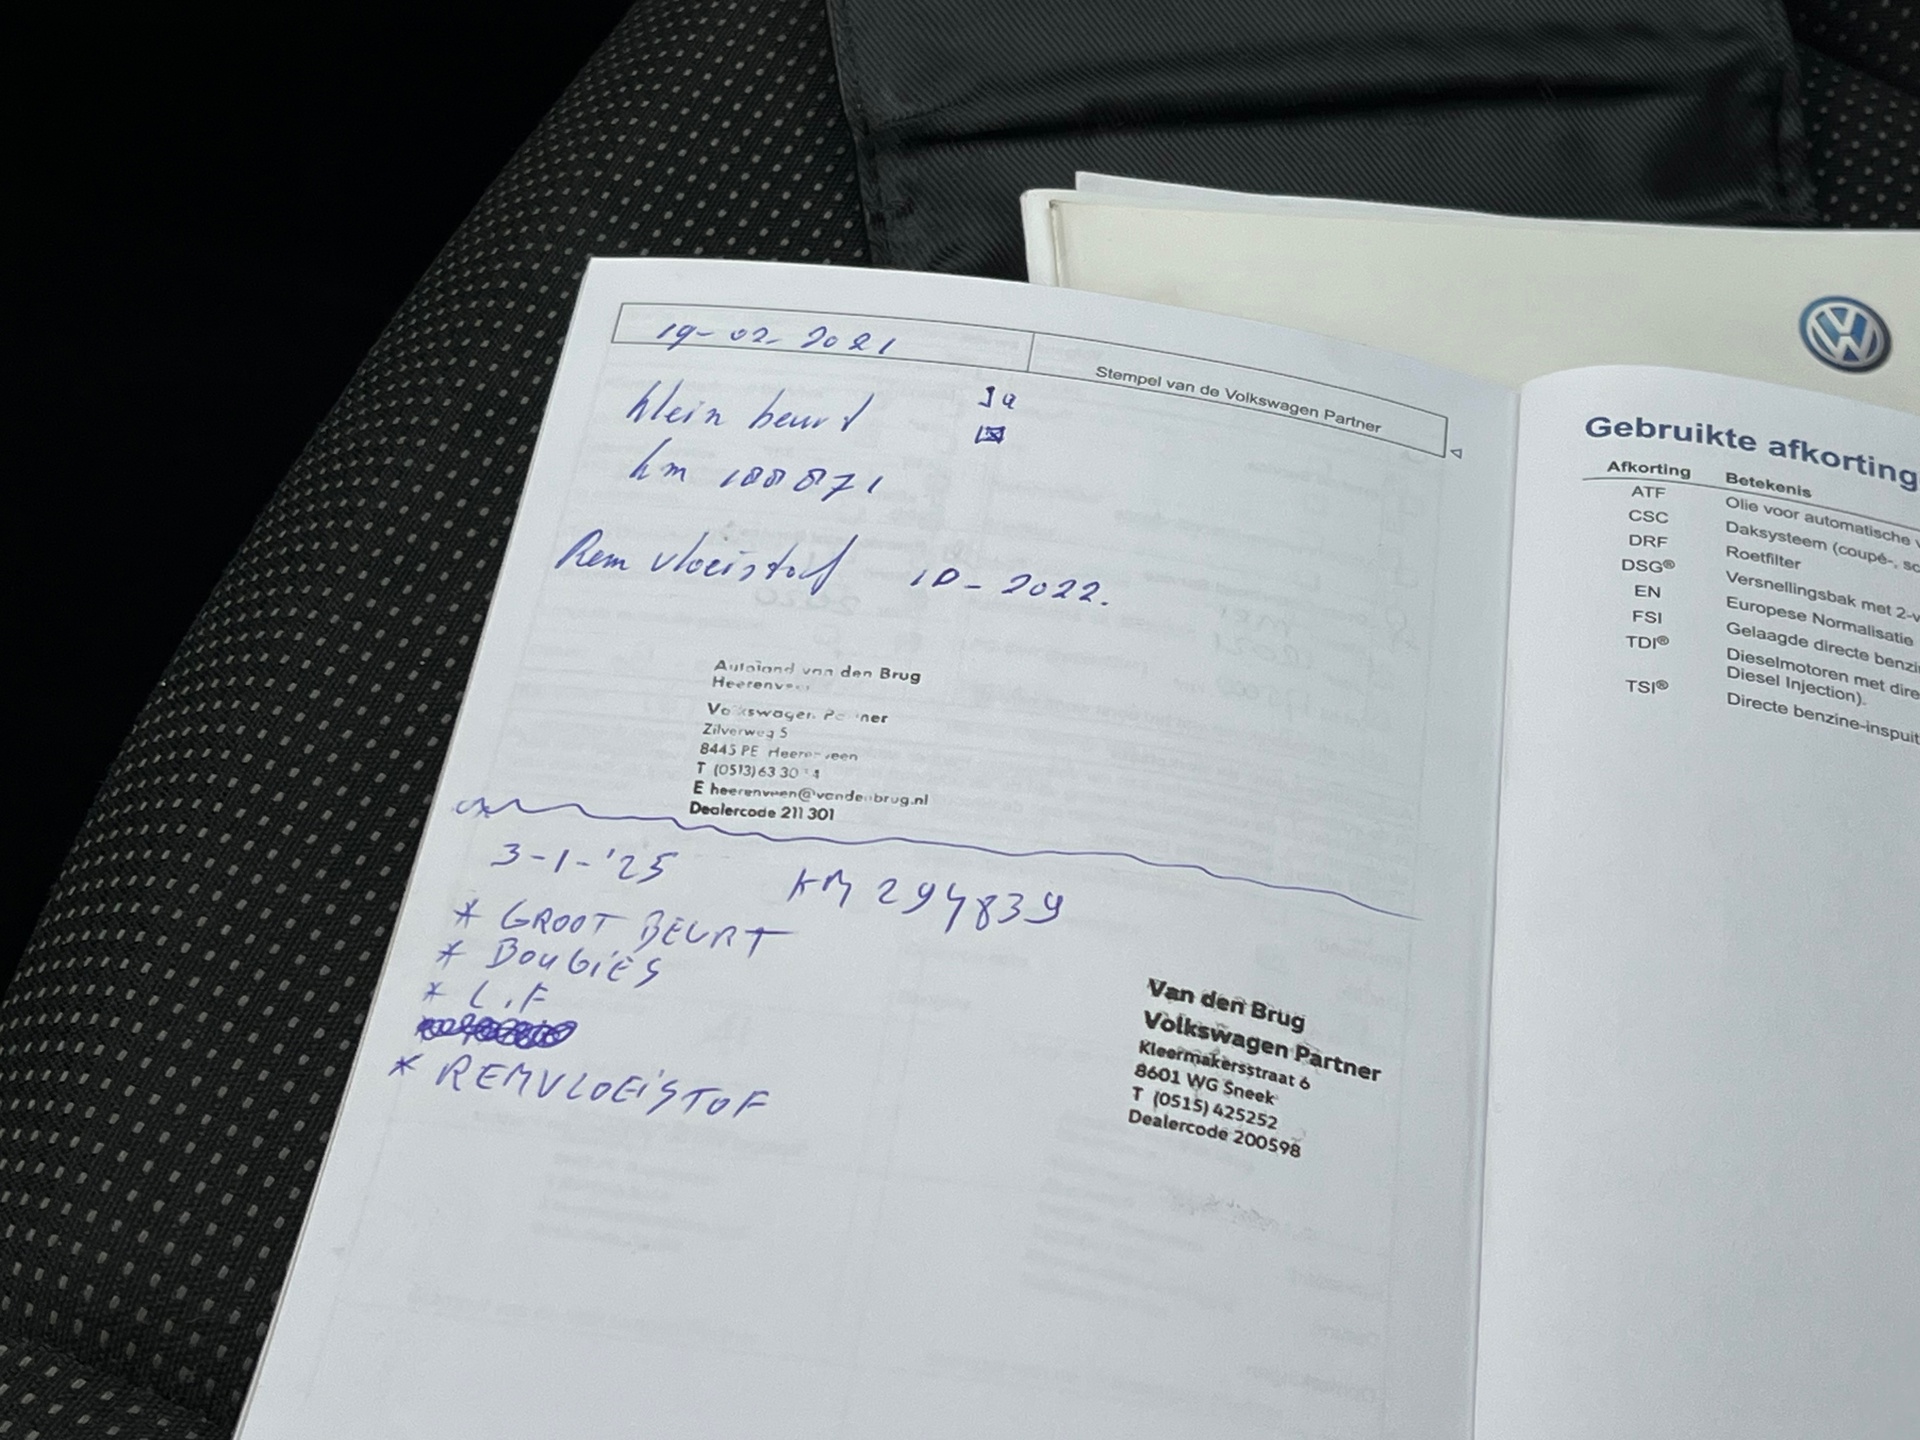 19-02-2021
Stempel van de Volkswagen Partner
klein beurt
Ja
km 188871
Rem vloeistof 10-2022.
Autoland van den Brug
Heerenveen
Volkswagen Partner
Zilverweg 5
8445 PE Heerenveen
T (0513) 63 30
E heerenveen@vandenbrug.nl
Dealercode 211 301
3-1-'25 KM 294839
* GROOT BEURT
* BOUGIES
* L.F
* REMVLOEISTOF
Van den Brug
Volkswagen Partner
Kleermakersstraat 6
8601 WG Sneek
T (0515) 425252
Dealercode 200598
Gebruikte afkorting
Afkorting Betekenis
ATF Olie voor automatische v
CSC Daksysteem (coupé-, sc
DRF Roetfilter
DSG® Versnellingsbak met 2-v
EN Europese Normalisatie
FSI Gelaagde directe benzi
TDI® Dieselmotoren met dire
Diesel Injection).
TSI® Directe benzine-inspuit